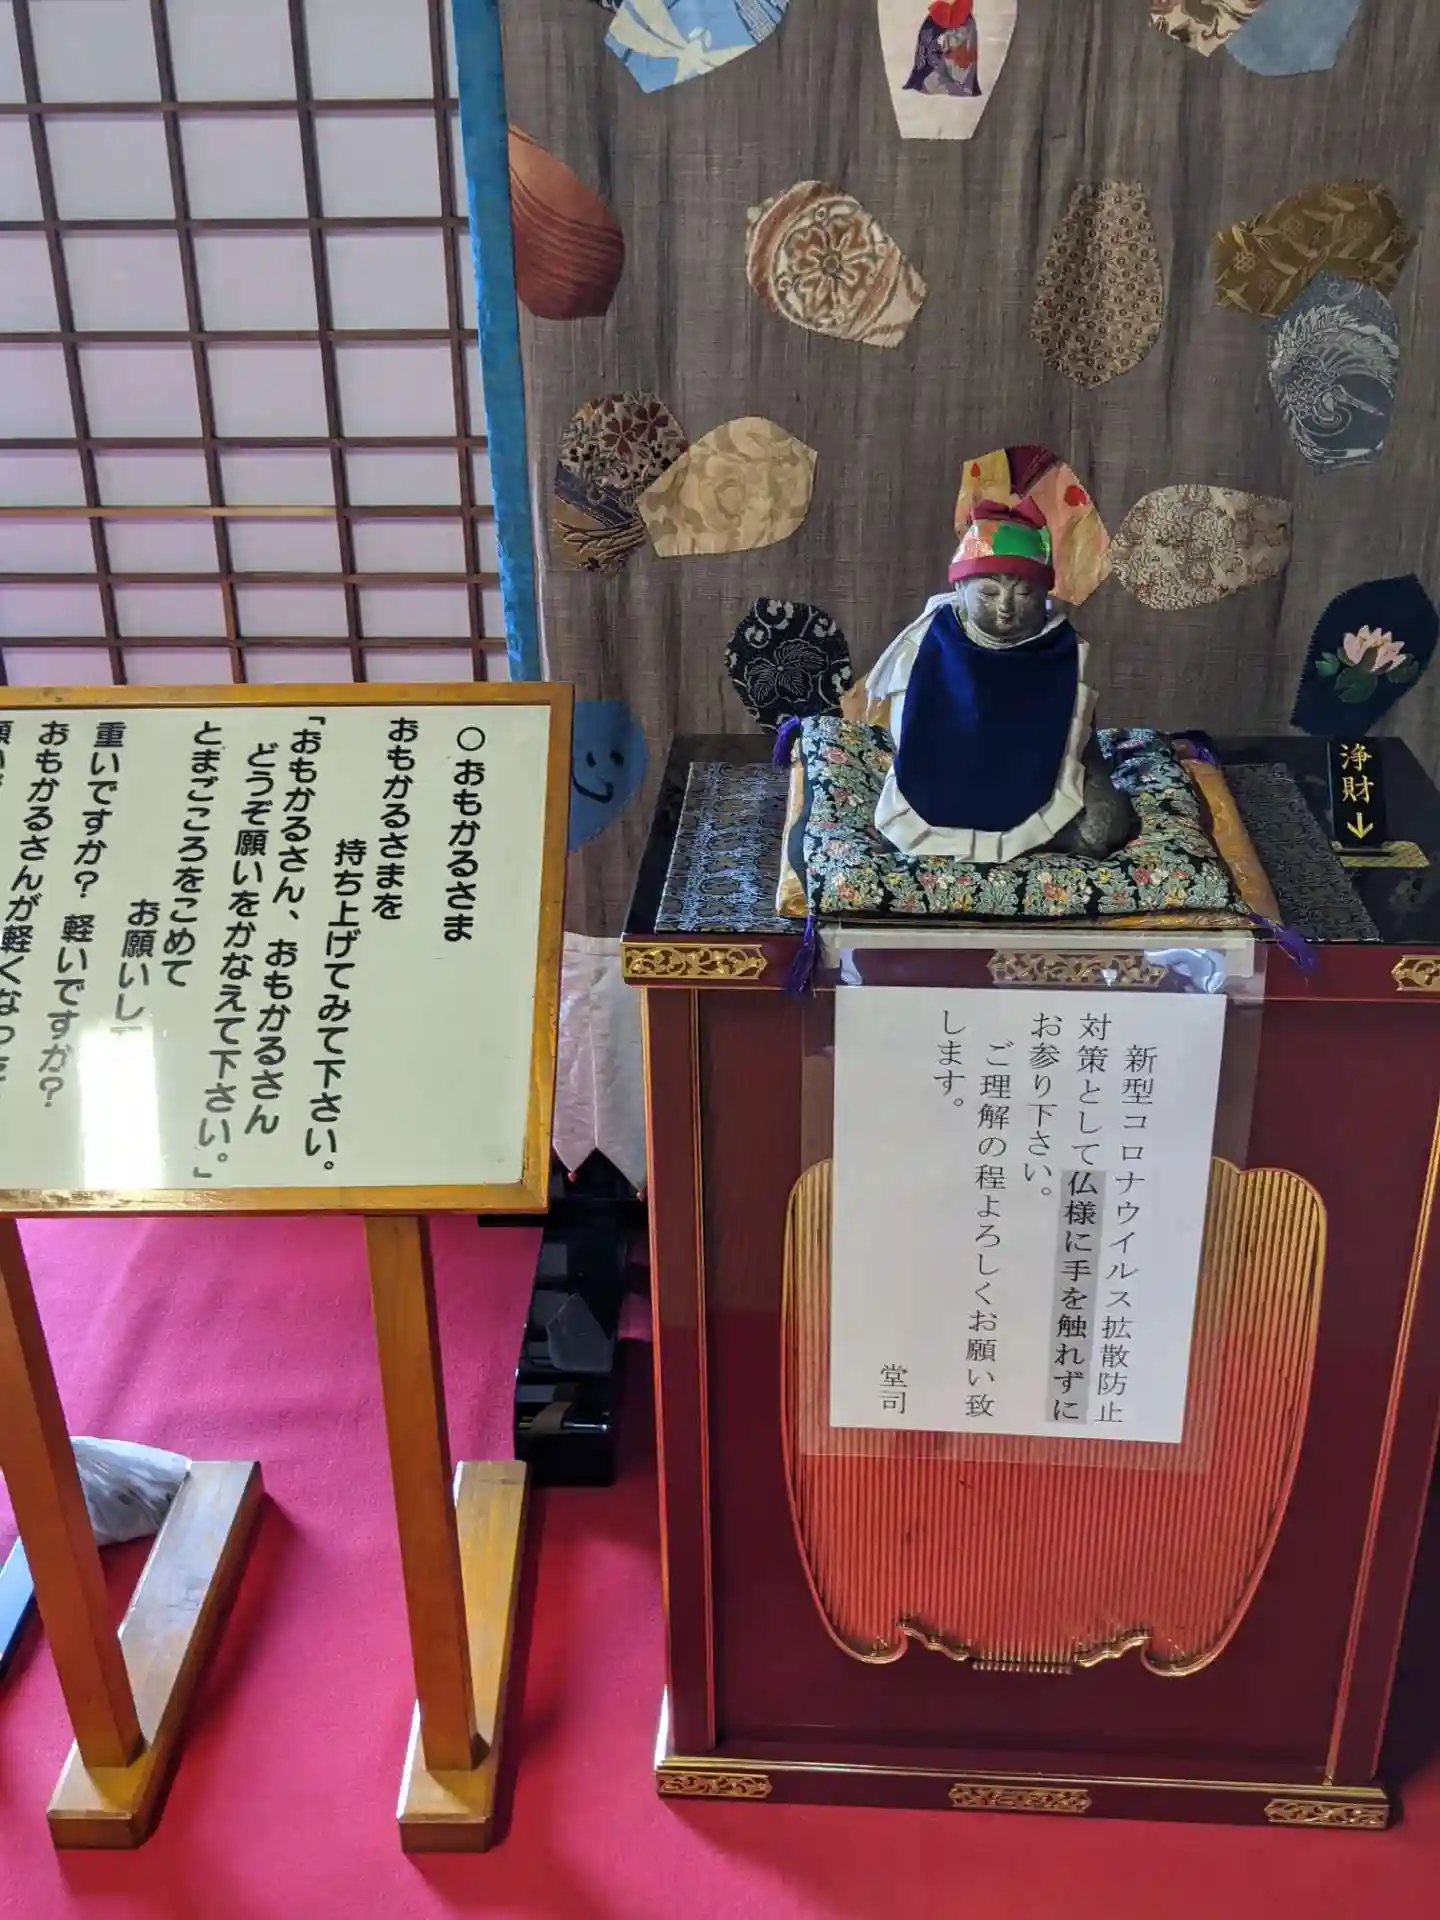 ○おもかるさま
おもかるさまを
持ち上げてみて下さい。
「おもかるさん、おもかるさん
どうぞ願いをかなえて下さい。」
とまごころをこめて
お願いし
重いですか？ 軽いですか？
おもかるさんが軽くなっ
浄財↓
新型コロナウイルス拡散防止
対策として仏様に手を触れずに
お参り下さい。
ご理解の程よろしくお願い致
します。
堂司